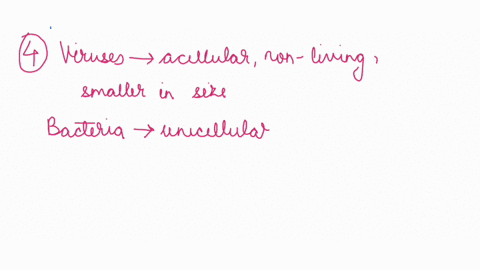 ④ Viruses → acellular, non-living,
smaller in size
Bacteria → unicellular